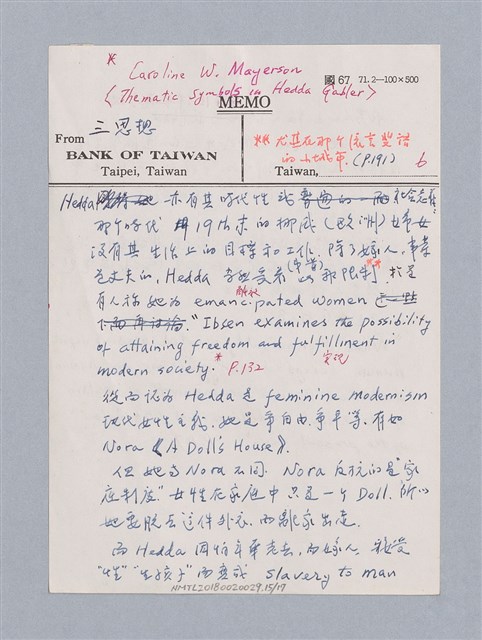 * Caroline W. Mayerson
〈Thematic Symbols in Hedda Gabler〉
國 67. 71.2—100×500
MEMO
From 三思想
BANK OF TAIWAN
Taipei, Taiwan
** 尤其在那个流言蜚語
的小城市。(P.191)
Taiwan, 6
Hedda 亦有其時代性 社會意義：
那个時代 19世末的挪威(欧洲)婦女
沒有其生活上的目標和工作，除了嫁人，事業
是丈夫的，Hedda (中產) 限制** 於是
有人称她為 emancipated women
解放
"Ibsen examines the possibility
of attaining freedom and fulfillment in
實現
modern society."* P.132
從而認為 Hedda 是 feminine modernism
現代女性主義，她是爭自由、爭平等、有如
Nora 《A Doll's House》.
但她与 Nora 不同. Nora 反抗的是"家
庭制度" 女性在家庭中只是一个 Doll. 所以
她要脫去這件外衣，而離家出走.
而 Hedda 因怕年華老去，而嫁人. 接受
"性" "生孩子" 而變成 slavery to man
NMTL20180020029.15/17